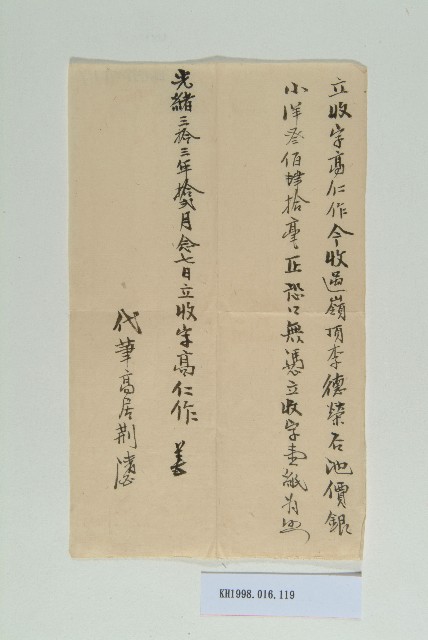 立收字高仁作今收過嶺頂李德榮石池價銀
小洋叁佰肆拾毫正恐口無憑立收字壹紙為照
光緒三拾三年拾弍月念七日立收字高仁作
代筆高居荆
KH1998.016.119